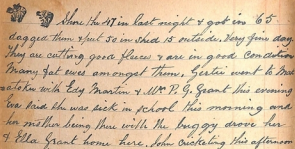 Shore the 47 in last night & got in 65
dagged them & put 50 in shed 15 outside. Very fine day
They are cutting good fleece & are in good condition
Many fat ewes amongst them. Gertie went to
with Edg Martin & Mrs P. G. Grant this evening
Eva said she was sick in school this morning and
her mother being there with the buggy drove her
& Ella Grant home here. John Crickeling this afternoon